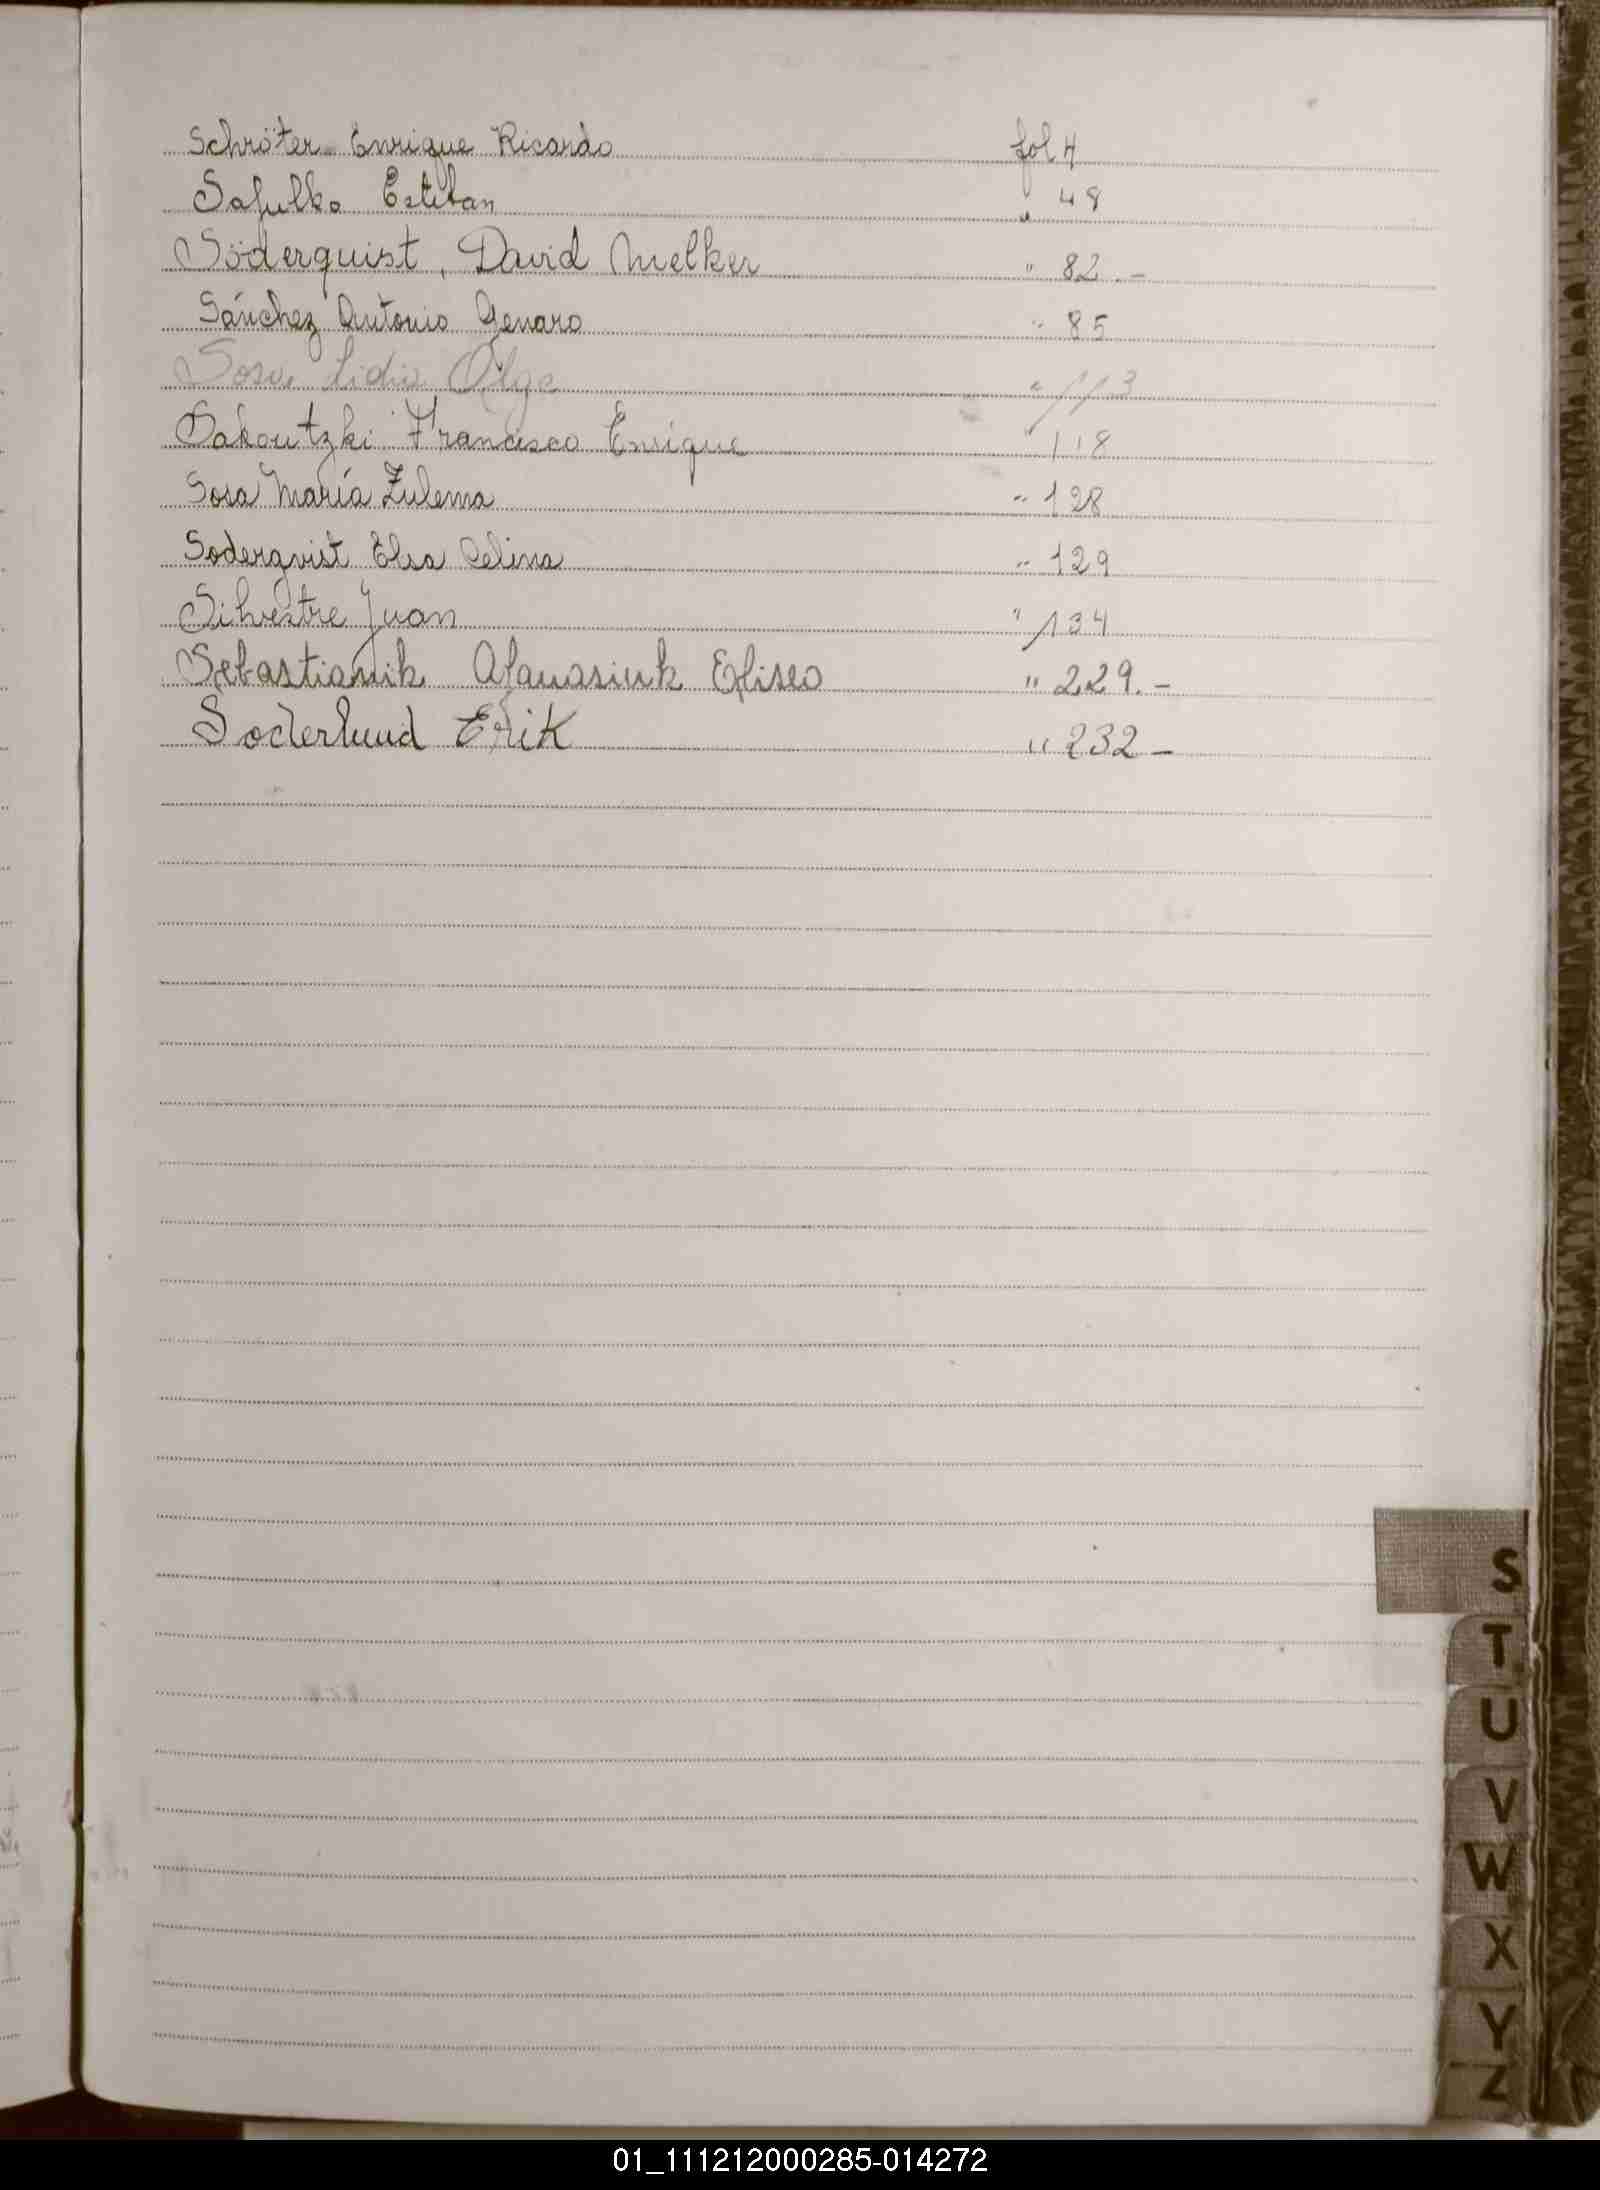 Schröter Enrique Ricardo fol 4
Safulko Esteban " 48
Söderquist, David Melker " 82.-
Sánchez Antonio Genaro " 85
Sosa Lidia Olga " 113
Sakoutzki Francisco Enrique " 118
Sosa María Zulema " 128
Soderqvist Elsa Celina " 129
Silvestre Juan " 134
Sebastianik Afanasiuk Eliseo " 229.-
Soderlund Erik " 232-
S
T
U
V
W
X
Y
Z
01_111212000285-014272